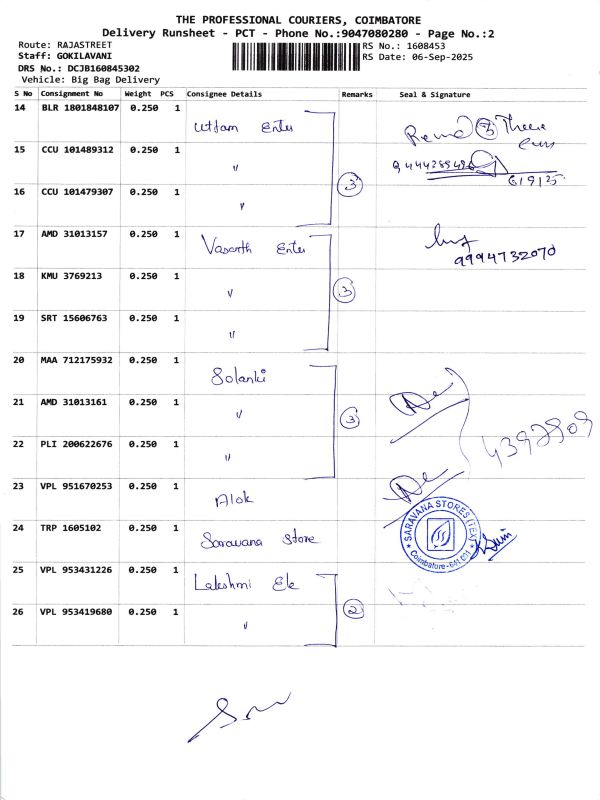 THE PROFESSIONAL COURIERS, COIMBATORE
Delivery Runsheet - PCT - Phone No.:9047080280 - Page No.:2
Route: RAJASTREET
RS No.: 1608453
Staff: GOKILAVANI
RS Date: 06-Sep-2025
DRS No.: DCJB160845302
Vehicle: Big Bag Delivery
S No Consignment No Weight PCS Consignee Details Remarks Seal & Signature
14 BLR 1801848107 0.250 1 Uttam Enter
15 CCU 101489312 0.250 1 "
16 CCU 101479307 0.250 1 " 3 6/9/25
17 AMD 31013157 0.250 1 Vasanth Enter 9994732070
18 KMU 3769213 0.250 1 " 3
19 SRT 15606763 0.250 1 "
20 MAA 712175932 0.250 1 Solanki
21 AMD 31013161 0.250 1 " 3
22 PLI 200622676 0.250 1 "
23 VPL 951670253 0.250 1 Alok
24 TRP 1605102 0.250 1 Saravana Store
SARAVANA STORES (TEX)
Coimbatore - 641 001
25 VPL 953431226 0.250 1 Lakshmi Ele
26 VPL 953419680 0.250 1 " 2